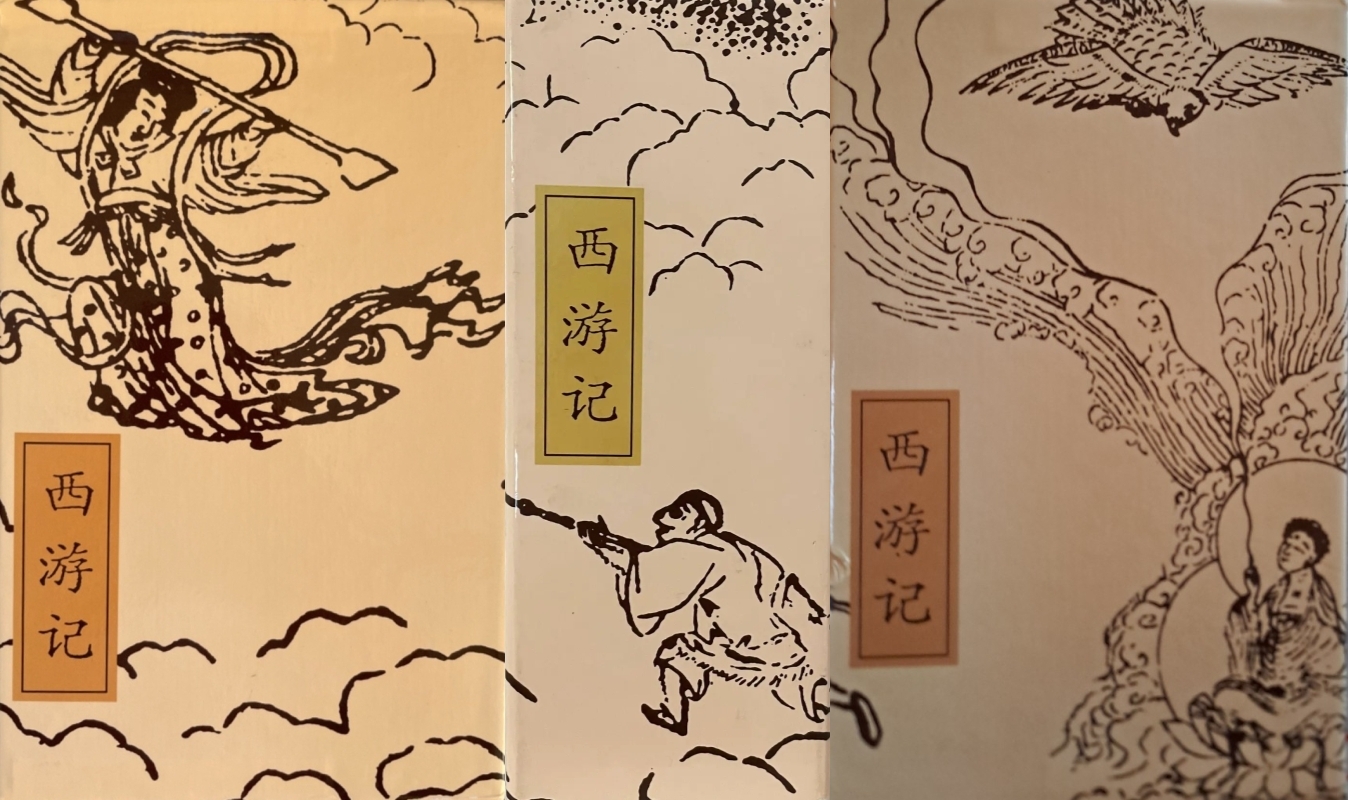 西游记
西游记
西游记